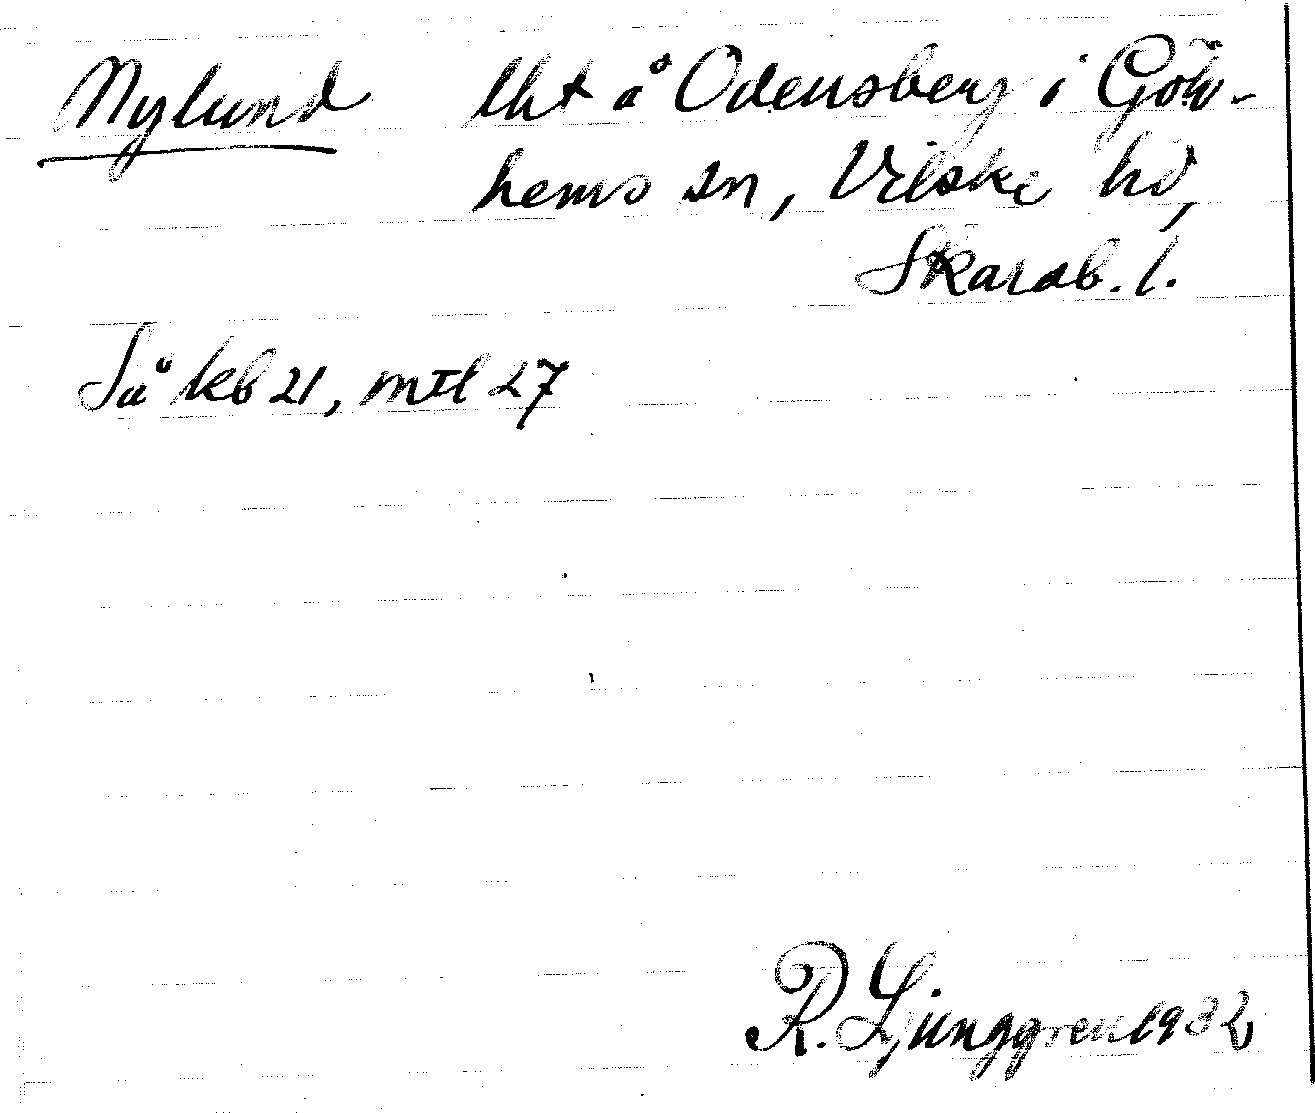 Nylund lht å Odensberg i Gök-
hems sn, Vilske hd,
Skarab. l.
Så kb 21, mtl 27
R. Ljunggren 1932